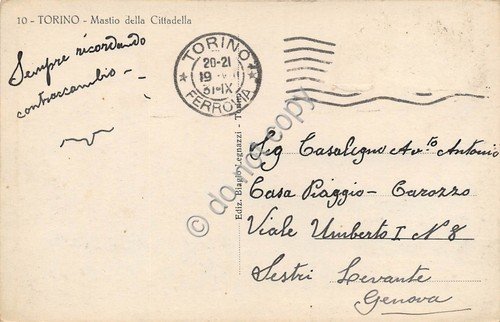 10 - TORINO - Mastio della Cittadella
Sempre ricordando
contraccambio -
TORINO
20-21
19
31-IX
FERROVIA
Ediz. Biagio Legnazzi - Torino
do not copy
Sig Casalegno Av.to Antonio
Casa Piaggio - Carozzo
Viale Umberto I N 8
Sestri Levante
Genova